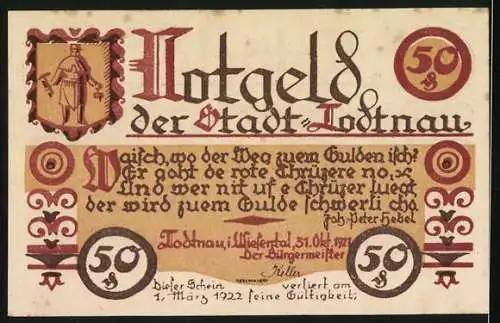 Notgeld 50 ₰
der Stadt Todtnau
Waisch, wo der Weg zuem Gulden isch?
Er goht de rote Chrüzere no,
Und wer nit uf e Chrüzer luegt
der wird zuem Gulde schwerli cho
Joh. Peter Hebel
Todtnau, i. Wiesental, 31. Okt. 1921
Der Bürgermeister
Keller
50 ₰ 50 ₰
Dieser Schein verliert am
1. März 1922 seine Gültigkeit.